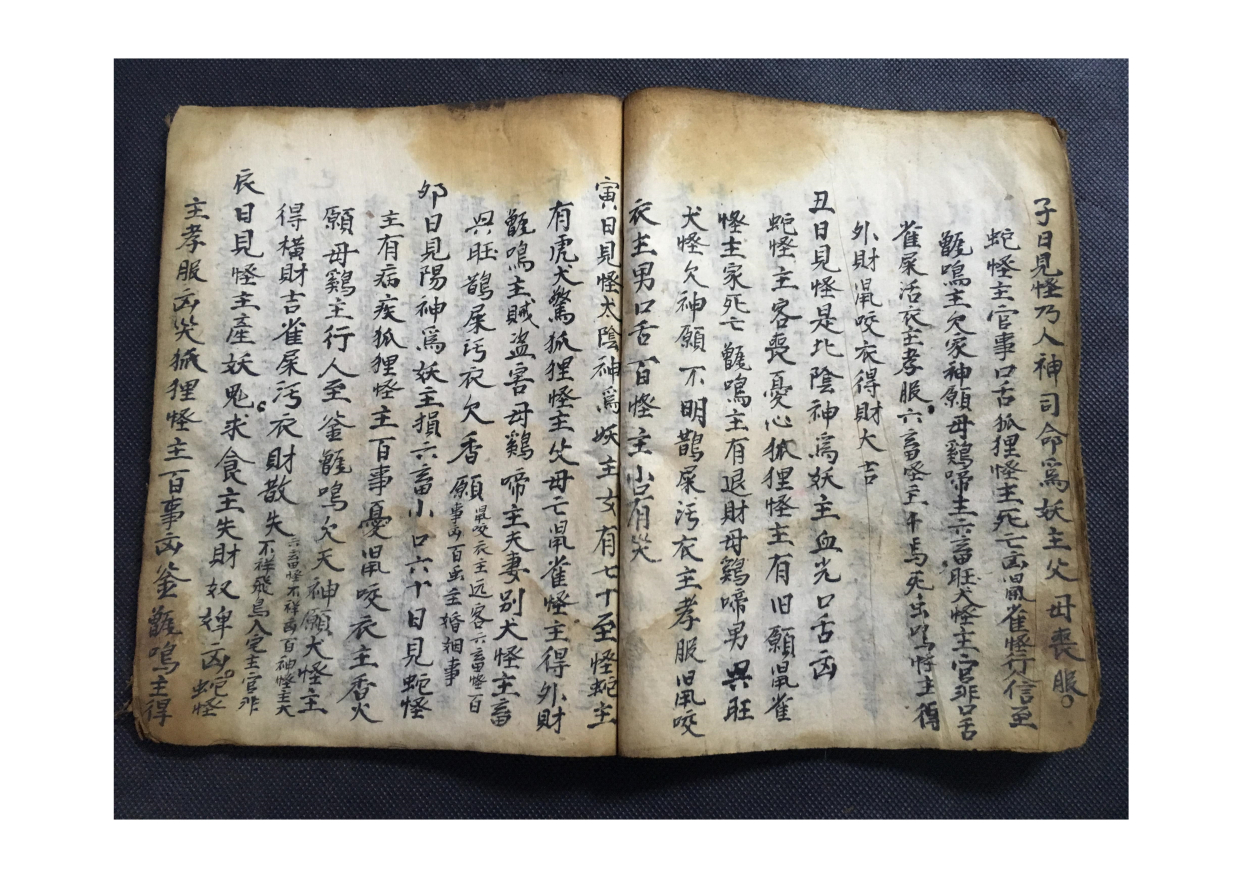 子日見怪乃人神司命為妖主父母喪服
蛇怪主官事口舌狐狸怪主死亡凶鼠雀怪行信至
甑鳴主欠家神願母鷄啼主六畜旺犬怪主官非口舌
雀屎活衣主孝服六畜怪主牛馬死 主得
外財鼠咬衣得財大吉
丑日見怪是北陰神為妖主血光口舌凶
蛇怪主客喪憂心狐狸怪主有旧願鼠雀
怪主家死亡甑鳴主有退財母鷄啼男興旺
犬怪欠神願不明鵲屎污衣主孝服旧鼠咬
衣主男口舌百怪主小口有哭
寅日見怪太陰神為妖主女有七十至怪蛇主
有虎犬驚狐狸怪主父母亡鼠雀怪主得外財
甑鳴主賊盗害母鷄啼主夫妻別犬怪主畜
興旺鵲屎污衣欠香願
鼠咬衣主远客六畜怪百
事凶百虫主婚姻事
卯日見陽神為妖主損六畜小口六十日見蛇怪
主有病疾狐狸怪主百事憂鼠咬衣主香火
願母鷄主行人至釜甑鳴欠天神願犬怪主
得横財吉雀屎污衣財散失
六畜怪不祥凶百神怪主大
不祥飛鳥入宅主官非
辰日見怪主產妖鬼求食主失財奴婢凶蛇怪
主孝服凶哭狐狸怪主百事凶釜甑鳴主得